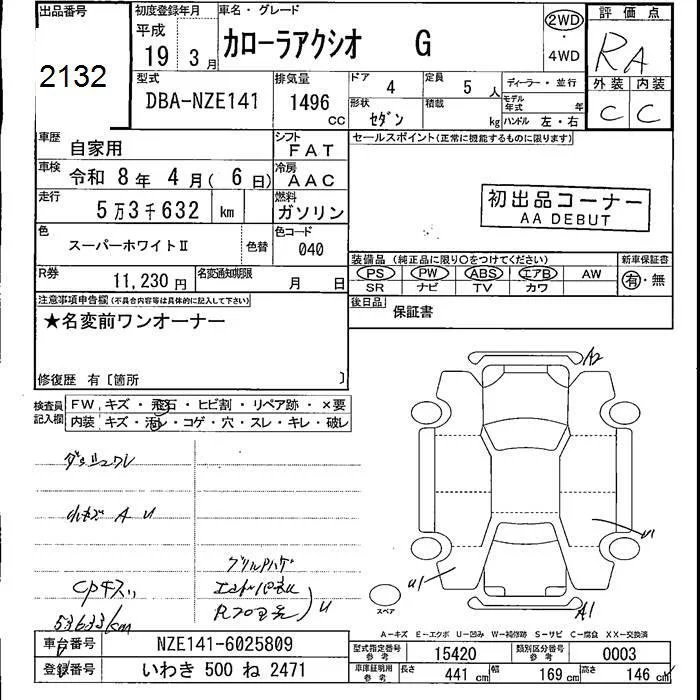 出品番号
2132
初度登録年月
平成
19年 3月
車名・グレード
カローラアクシオ G
2WD
・
4WD
評価点
RA
外装 内装
C C
型式
DBA-NZE141
排気量
1496
CC
ドア 4
定員 5 人
ディーラー・並行
形状 セダン
積載 kg
モデル年式 年
ハンドル 左・右
車歴
自家用
シフト
FAT
車検
令和 8年 4月( 6日)
冷房
AAC
走行
5万3千632 km
燃料
ガソリン
色
スーパーホワイトⅡ
色替
色コード
040
R券
11,230円
名変通知期限
月 日
セールスポイント(正常に機能するものに限ります)
初出品コーナー
AA DEBUT
装備品(純正品に限り○をつけてください)
PS PW ABS エアB AW
SR ナビ TV カワ
新車保証書
有・無
後日品
保証書
注意事項申告欄(不具合内容等は具体的に記入して下さい)
★名変前ワンオーナー
修復歴 有〔箇所 〕
検査員記入欄
FW キズ・飛石・ヒビ割・リペア跡・×要
内装 キズ・汚レ・コゲ・穴・スレ・キレ・破レ
ダッシュワレ
小キズ A U
グリルハゲ
CPキズ
U
53633km
A2
U1
U1
A1
スペア
A-キズ E-エクボ U-凹み W-補修跡 S-サビ C-腐食 XX-交換済
車台番号 NZE141-6025809
登録番号 いわき 500 ね 2471
型式指定番号 参考 15420
類別区分番号 参考 0003
車庫証明用 参考 長さ 441 cm 幅 169 cm 高さ 146 cm